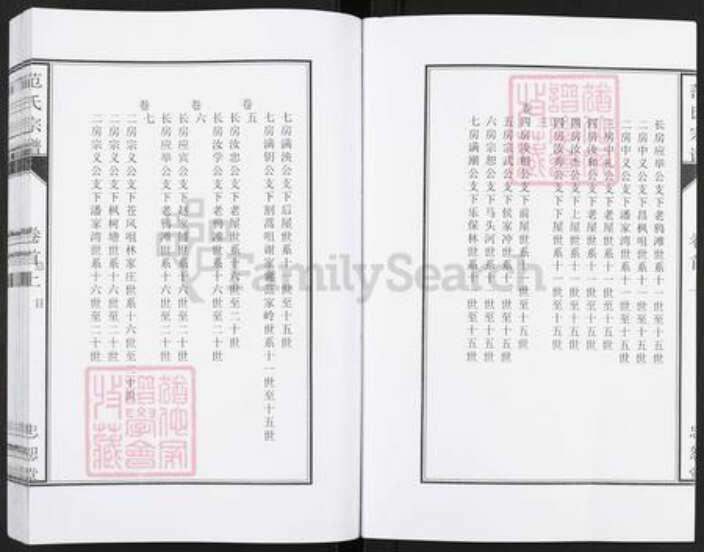 长房应举公支下老鸦滩世系十一世至十五世
二房中义公支下昌枫咀世系十一世至十五世
二房中义公支下潘家湾世系十一世至十五世
老屋世系十一世至十五世
四房汝和公支下老屋世系十一世至十五世
四房汝杰公支下上屋世系十一世至十五世
四房汝寿公支下下屋世系十一世至十五世
四房汝相公支下前屋世系十一世至十五世
五房宗武公支下侯家冲世系十一世至十五世
六房宗恕公支下马头河世系十一世至十五世
七房满潮公支下乐保林世系十一世至十五世
七房满浼公支下后屋世系十一世至十五世
七房满钥公支下割蒿咀谢家岭世系十一世至十五世
卷五
长房汝忠公支下老屋世系十六世至二十世
长房汝学公支下老鸦滩世系十六世至二十世
卷六
长房应宾公支下赵家世系十六世至二十世
长房应举公支下老鸦滩世系十六世至二十世
卷七
二房宗义公支下苍凤咀林家庄世系十六世至二十四
二房宗义公支下枫树塘世系十六世至二十世
二房宗义公支下潘家湾世系十六世至二十世
范氏宗谱
卷首上
目
忠恕堂
FamilySearch